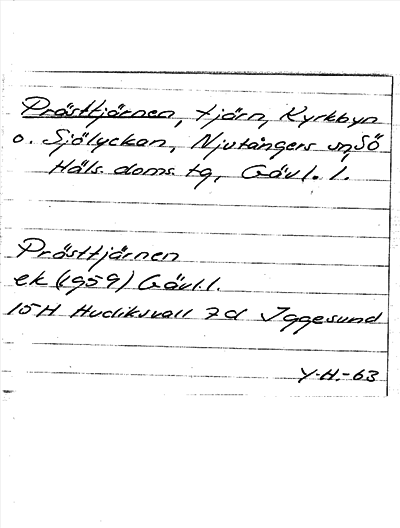 Prästtjärnen, tjärn, Kyrkbyn
o. Sjölyckan, Njutångers sn, Sö
Häls. doms. tg, Gävl. l.
Prästtjärnen
ek (1959) Gävl.l.
15H Hudiksvall 7d Iggesund
Y-H.-63